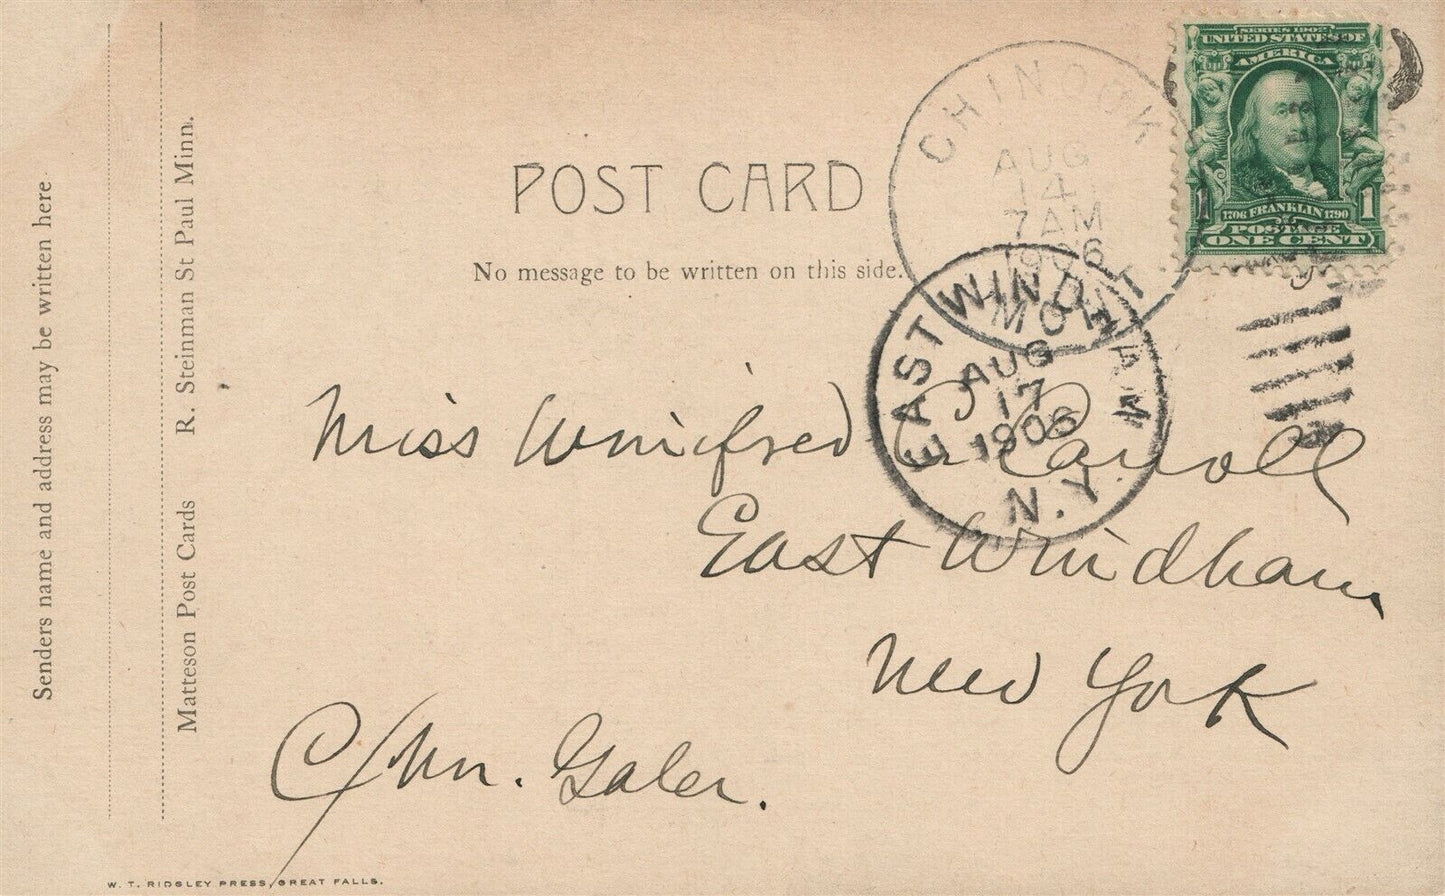 POST CARD
No message to be written on this side.
SERIES 1902
UNITED STATES OF
AMERICA
1 1706 FRANKLIN 1790 1
POSTAGE
ONE CENT
CHINOOK
AUG
14
7 AM
1906
MONT
EAST WINDHAM
AUG
17
1906
N.Y.
Miss Winifred Carroll
East Windham
New York
C/ Galer.
Senders name and address may be written here
Matteson Post Cards R. Steinman St Paul Minn.
W. T. RIDGLEY PRESS, GREAT FALLS.